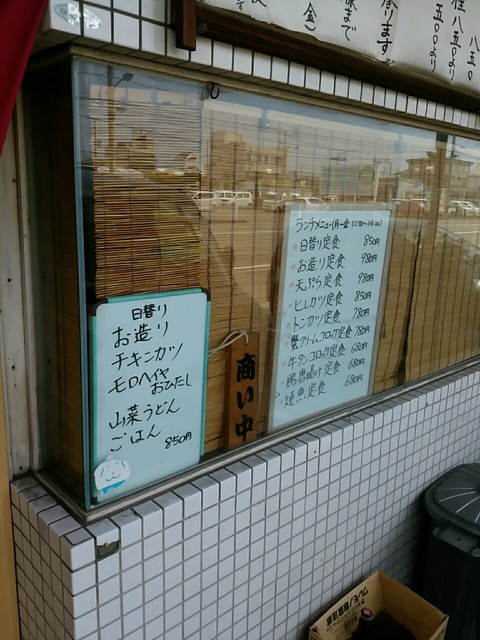 日替り
お造り
チキンカツ
モロヘイヤ
おひたし
山菜うどん
ごはん
850円
商い中
ランチメニュー(月〜金 11:30〜14:00)
日替り定食 850円
お造り定食 980円
天ぷら定食 980円
ヒレカツ定食 850円
トンカツ定食 780円
蟹クリームコロッケ定食 780円
牛タンコロッケ定食 680円
鶏唐揚げ定食 680円
焼魚定食 680円
八五〇より
五〇より
承ります
まで
(金)